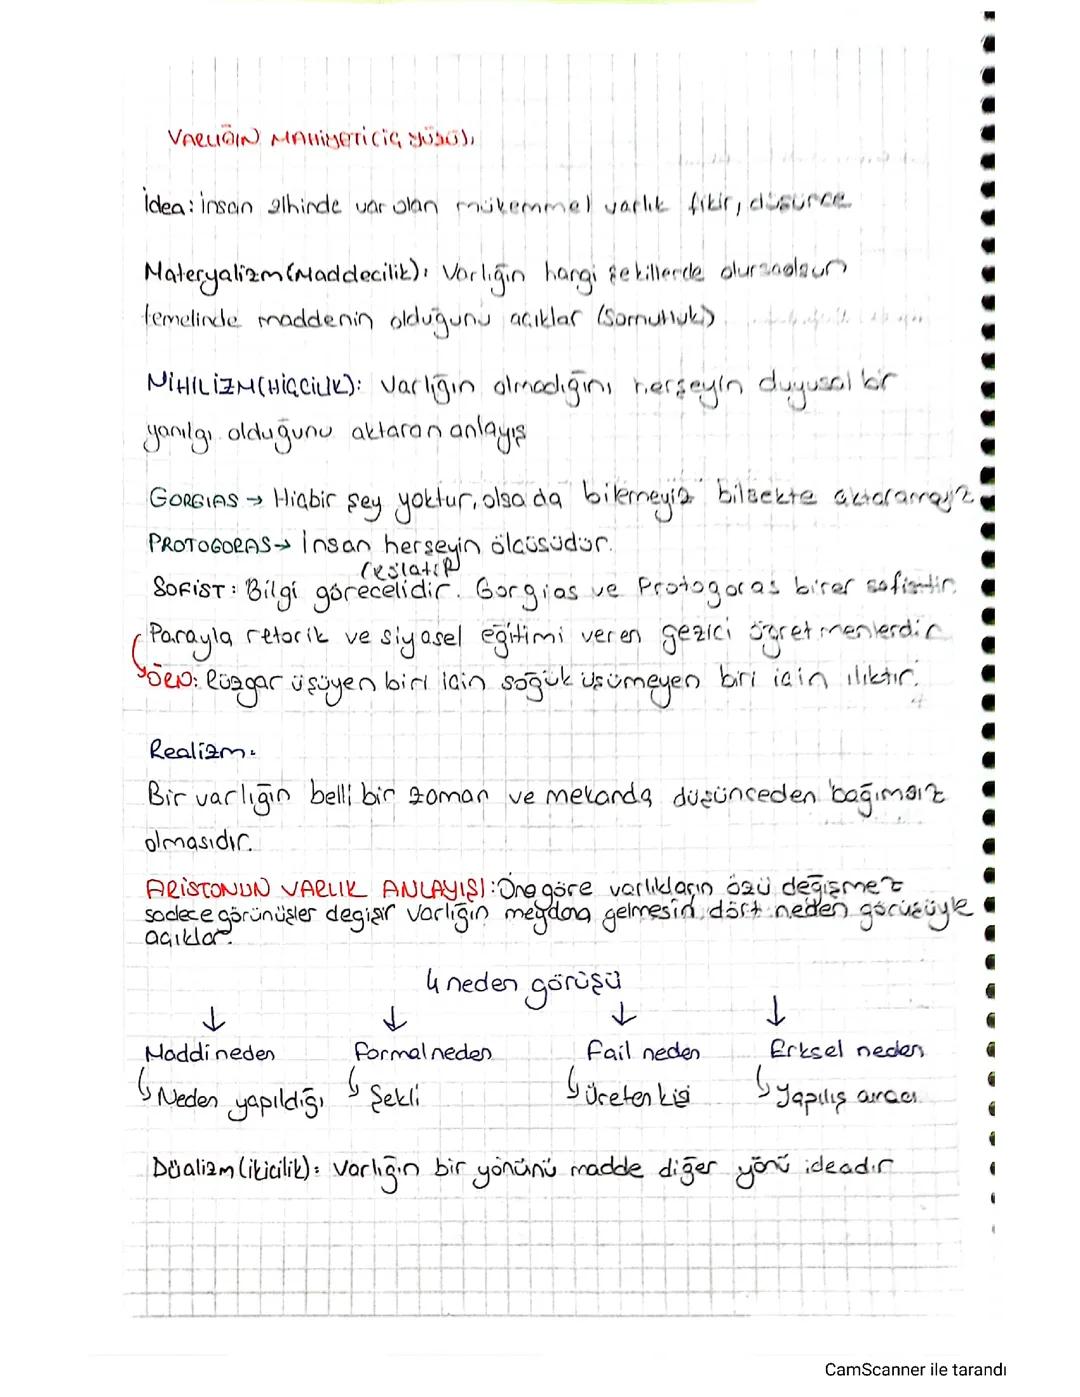 VARLIĞIN MAHİYETİ (İÇ YÜZÜ);
İdea: İnsan zihinde var olan mükemmel varlık fikir, düşünce
Materyalizm (Maddecilik): Varlığın hangi şekillerde olursaolsun
temelinde maddenin olduğunu açıklar (Somutluk)
NİHİLİZM (HİÇCİLİK): Varlığın olmadığını herşeyin duyusal bir
yanılgı olduğunu aktaran anlayış
GORGIAS → Hiçbir şey yoktur, olsa da bilemeyiz bilsekte aktaramayız
PROTOGORAS → İnsan herşeyin ölçüsüdür.
(reslatif)
SOFİST: Bilgi görecelidir. Gorgias ve Protogoras birer sofisttir.
Parayla retorik ve siyasel eğitimi veren gezici öğretmenlerdir
ÖRN: Rüzgar üşüyen biri için soğuk üşümeyen biri için ılıktır.
Realizm:
Bir varlığın belli bir zaman ve mekanda düşünceden bağımsız
olmasıdır.
ARİSTONUN VARLIK ANLAYIŞI: Ona göre varlıkların özü değişmez
sadece görünüşler degişir varlığın meydana gelmesin dört neden görüşüyle
açıklar.
4 neden görüşü
↓ ↓ ↓ ↓
Maddi neden Formal neden Fail neden Erksel neden
Neden yapıldığı Şekli Üreten kişi Yapılış amacı
Düalizm (ikicilik): Varlığın bir yönünü madde diğer yönü ideadır
CamScanner ile tarandı